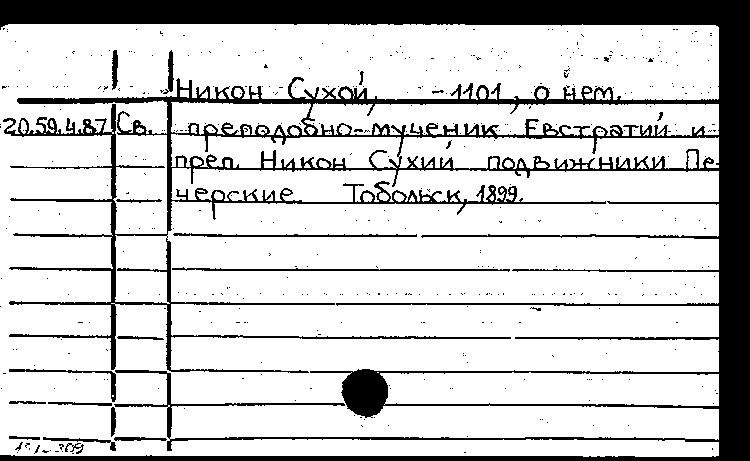 Никон Сухой, - 1101, о нем.
20.59.4.87 Св. преподобно-мученик Евстратий и
преп. Никон Сухий подвижники Пе-
черские. Тобольск, 1899.